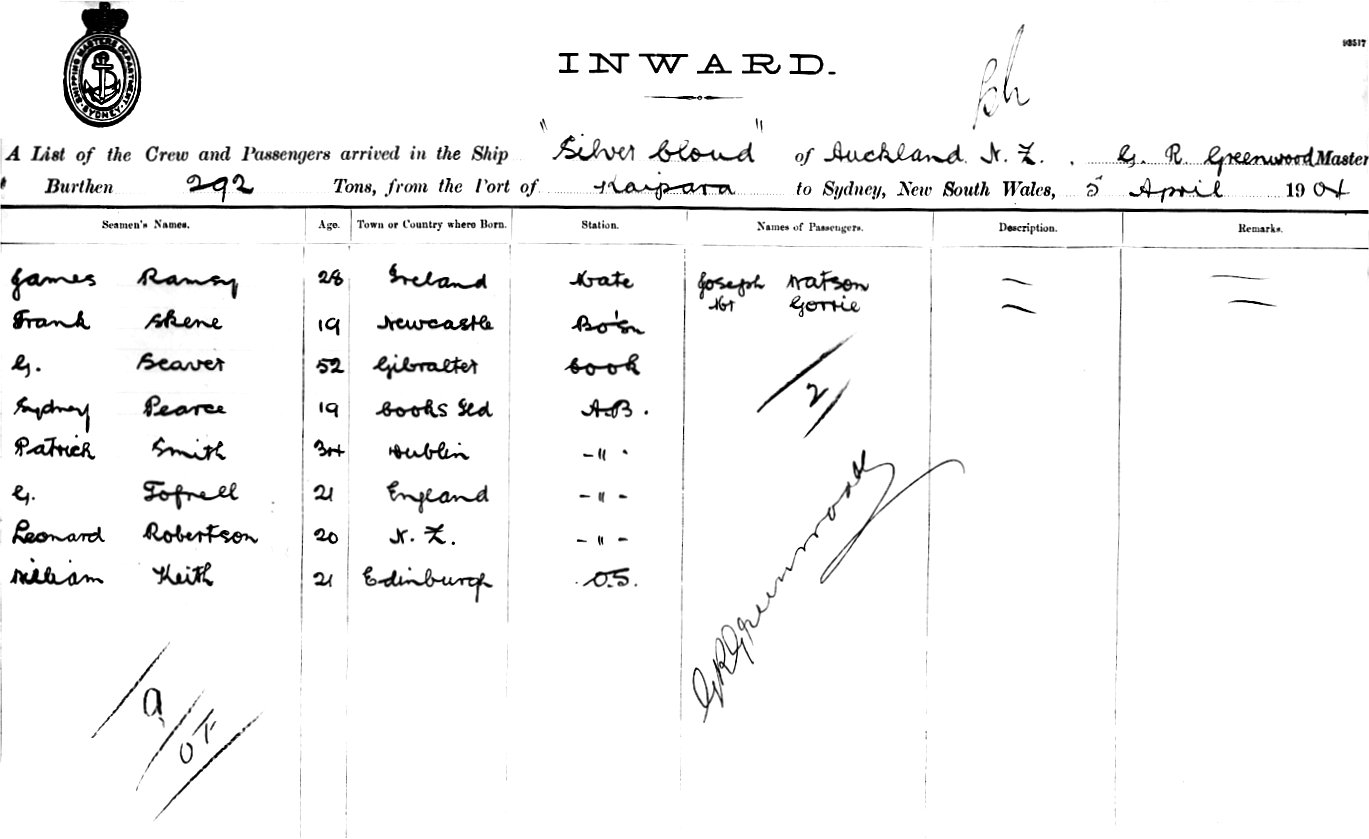 SHIPPING MASTERS DEPARTMENT
SYDNEY
93517
INWARD.
A List of the Crew and Passengers arrived in the Ship "Silver Cloud" of Auckland N. Z. . G. R. Greenwood Master
Burthen 292 Tons, from the Port of Kaipara to Sydney, New South Wales, 5 April 1904
Seamen's Names. Age. Town or Country where Born. Station. Names of Passengers. Description. Remarks.
James Ramsy 28 Ireland Mate Joseph Watson
Mr Gorrie
Frank Skene 19 Newcastle Bo'sn
G. Seaver 52 Gibralter Cook
Sydney Pearce 19 Cooks Ild A.B.
2
Patrick Smith 34 Dublin -"-
G. Tofrell 21 England -"-
Leonard Robertson 20 N. Z. -"-
William Keith 21 Edinburgh O.S.
GRGreenwood
9